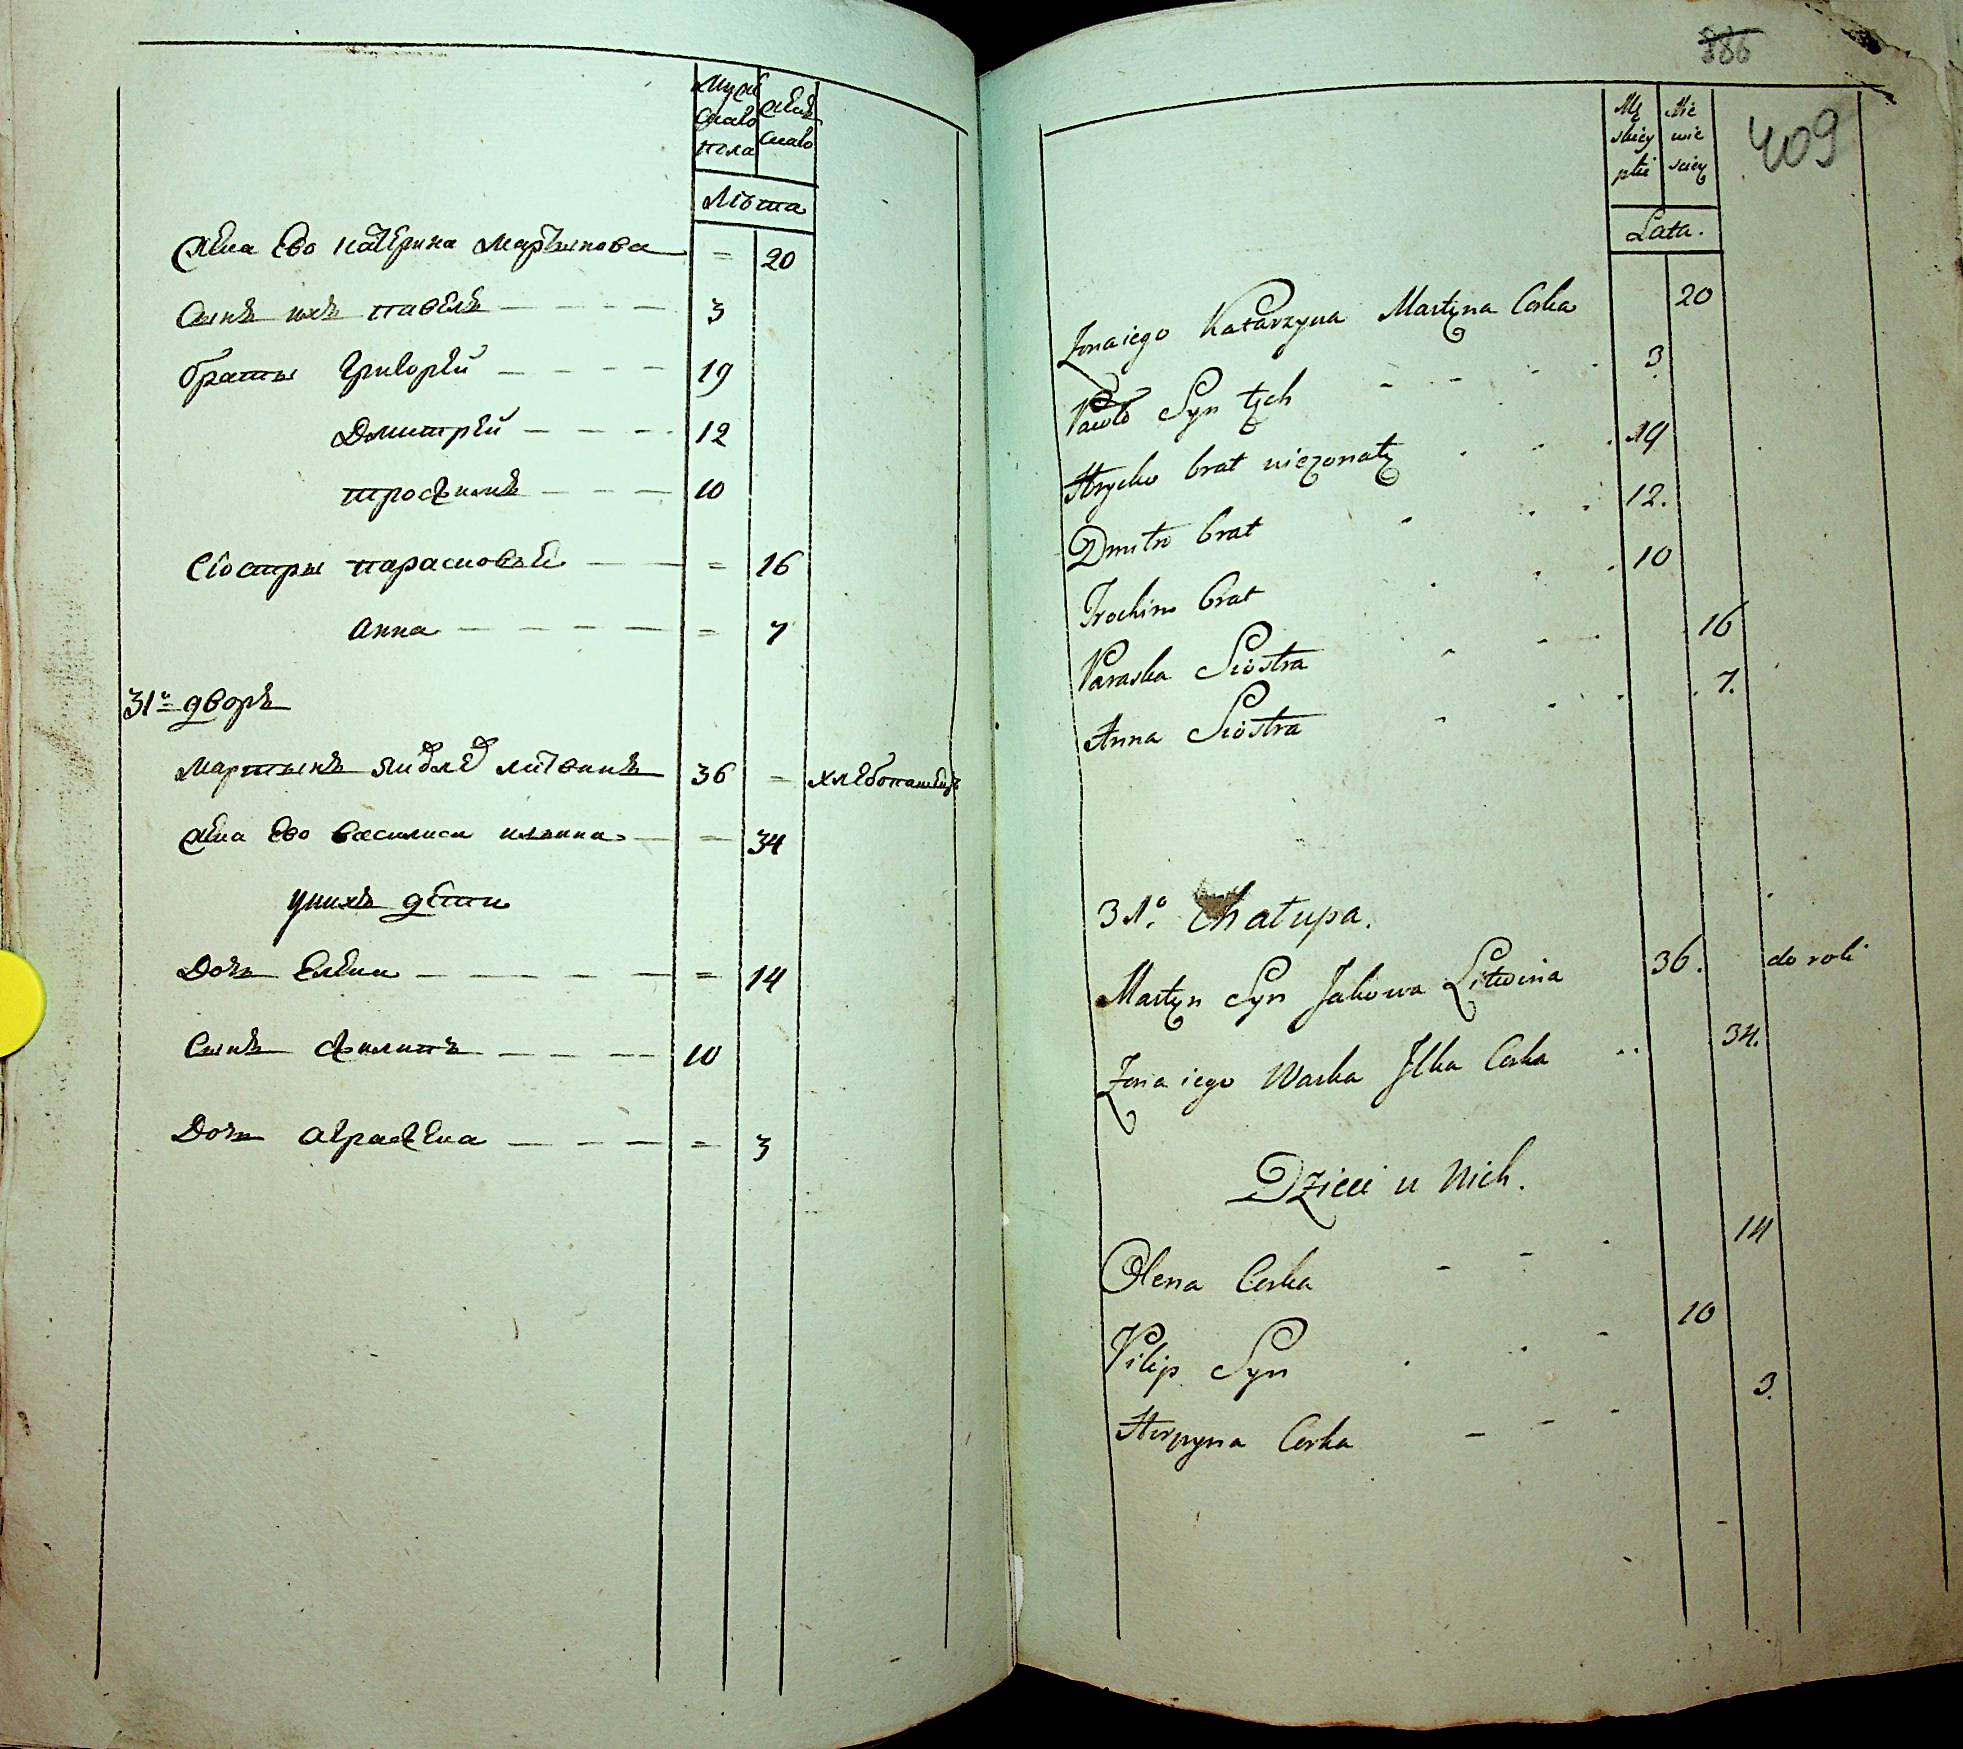 Муже Женъ
скаво скаво
пола
Лѣта
Жена Ево катерина мартынова = 20
Сынъ ихъ павелъ 3
браты Григорей 19
Дмитрей 12
трофимъ 10
Сiостры парасковья = 16
Анна = 7
31й дворъ
мартынъ литвинъ 36 = хлебопашецъ
Жена Ево василиса ильина = 34
у нихъ дети
Дочь Елена = 14
Сынъ филипъ 10
Дочь Аграфена = 3
886
409
Mę Nie
skiey wie
płci sciey
Lata.
Zona iego Katarzyna Martyna Corka 20
Pawło Syn tych 3
Hryćko brat nieżonaty 19
Dmitro brat 12.
Trochim brat 10
Paraska Siostra 16
Anna Siostra 7.
31º. Chałupa.
Martyn Syn Jakowa Litwina 36. do roli
Zona iego Waska Ilka Corka 34.
Dzieci u Nich.
Olena Corka 14
Pilip Syn 10
Horpyna Corka 3.